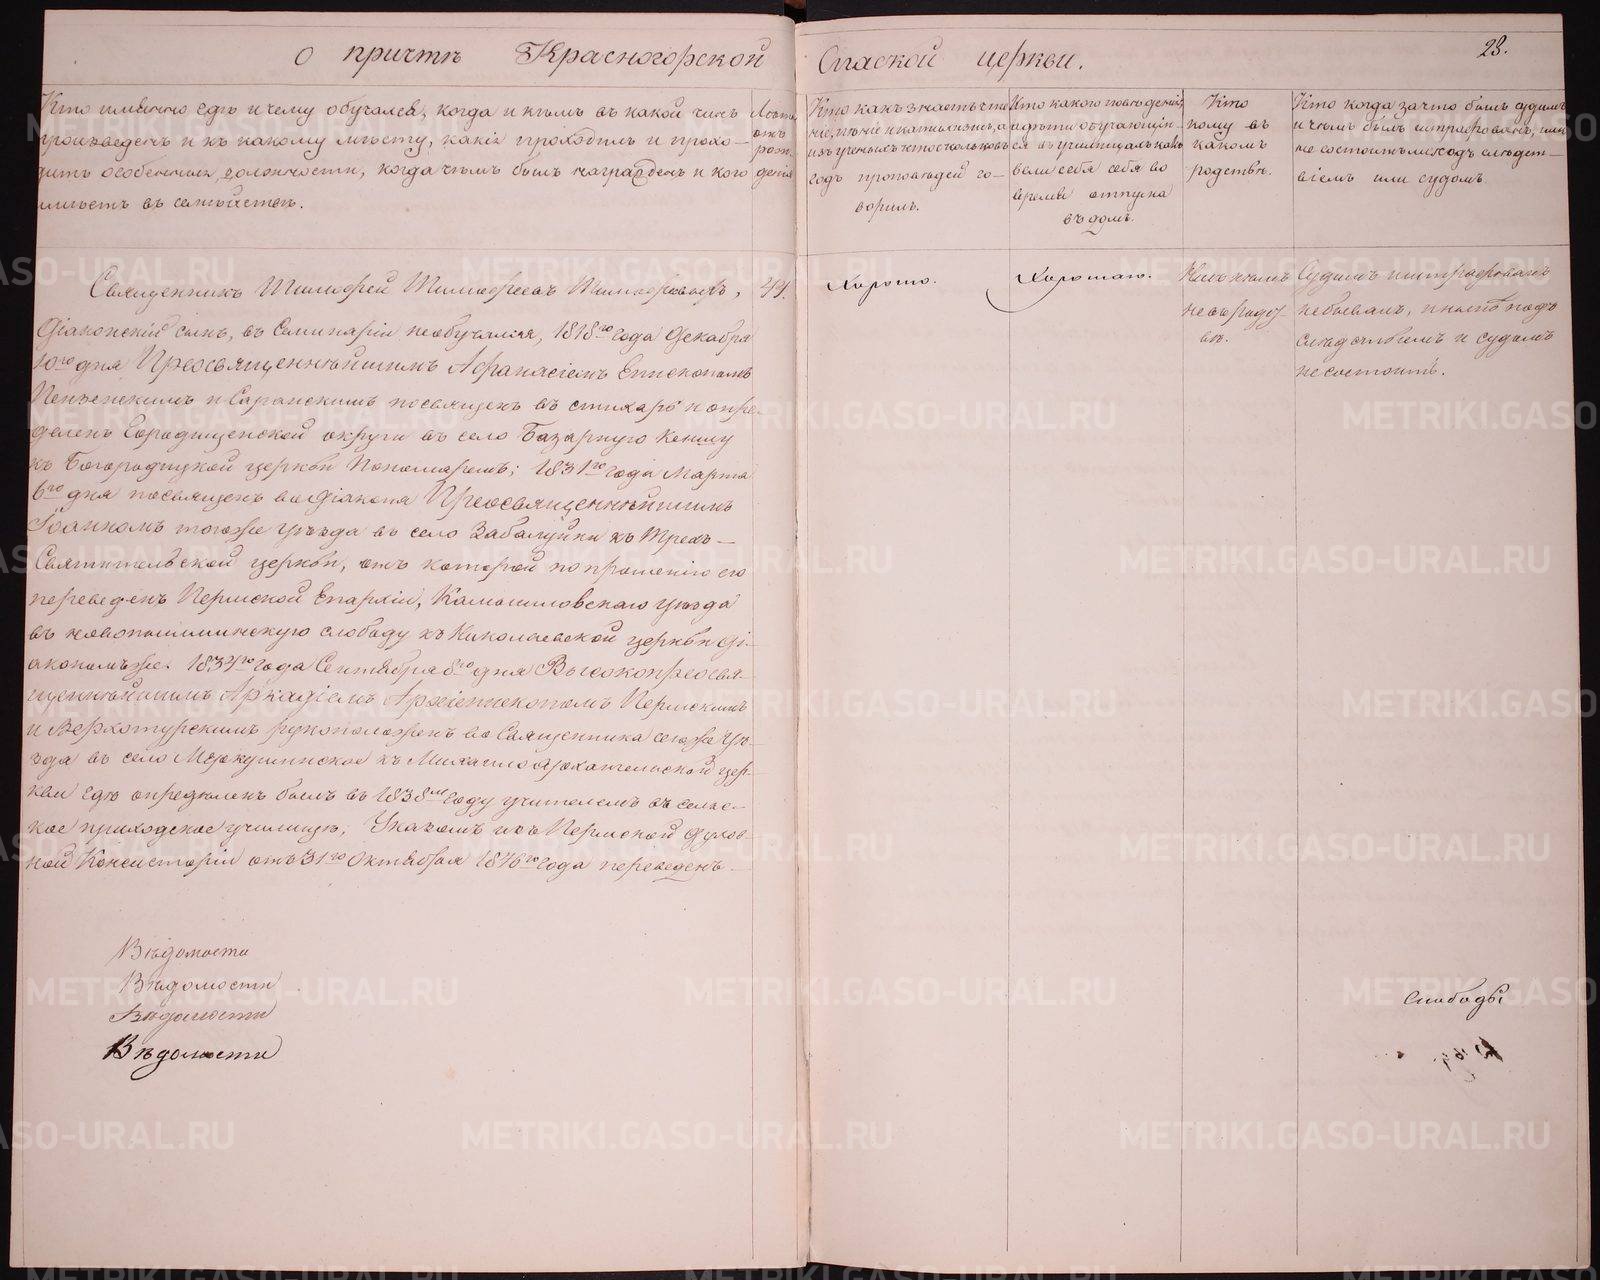 О причтѣ Красногорской Спаской церкви.
23.
Кто имянно гдѣ и чему обучался, когда и кѣмъ въ какой чинъ
произведенъ и къ какому мѣсту, какія проходилъ и прохо-
дитъ особенныя должности, когда чѣмъ былъ награжденъ и кого
имѣетъ въ семействѣ.
Лѣта
отъ
рож-
денія
Кто какъ знаетъ чте
ніе, пѣніе и катихизисъ, а
изъ ученыхъ кто сколько въ
годъ проповѣдей го-
ворилъ.
Кто какого поведенія,
и дѣти обучающія-
ся въ училищахъ каково
вели себя себя во
время отпуска
въ домъ.
Кто
кому въ
какомъ
родствѣ.
Кто когда за что былъ судимъ
и чѣмъ былъ штрафованъ, или
не состоитъ ли подъ слѣдст-
віемъ или судомъ.
Священникъ Тимофей Тимофеевъ,
44.
Діаконскій сынъ, въ Семинаріи не обучался, 1818го года Декабря
10го дня Преосвященнѣйшимъ Афанасіемъ Епископомъ
Пензенскимъ и Саранскимъ посвященъ въ стихарь и опре-
деленъ Городищенской округи въ село Базарную Кеншу
къ Богородицкой церкви Пономаремъ; 1831го года Марта
6го дня посвященъ во діакона Преосвященнѣйшимъ
Іоанномъ тогоже уѣзда въ село Забалуйки къ Трехъ-
Святительской церкви, отъ которой по прошенію его
переведенъ Пермской Епархіи, Камышловскаго уѣзда
въ новопышминскую слободу къ Николаевской церкви ді-
акономъ же. 1834го года Сентября 8го дня Высокопреосвя-
щеннѣйшимъ Аркадіемъ Архіепископомъ Пермскимъ
и Верхотурскимъ рукоположенъ во Священника сегоже уѣ-
зда въ село Меркушинское къ Михаило архангельской цер-
кви гдѣ опредѣленъ былъ въ 1838мъ году учителемъ въ сельс-
кое приходское училище, Указомъ изъ Пермской Духов-
ной Консисторіи отъ 31го Октября 1846го года переведенъ
Хорошо.
Хорошаго.
Ни съ кѣмъ
не въ родст
вѣ.
Судимъ и штрафованъ
небывалъ, и ныне подъ
слѣдствіемъ и судомъ
не состоитъ.
Вѣдомости
Вѣдомости
Вѣдомости
Вѣдомости
Слободы
METRIKI.GASO-URAL.RU